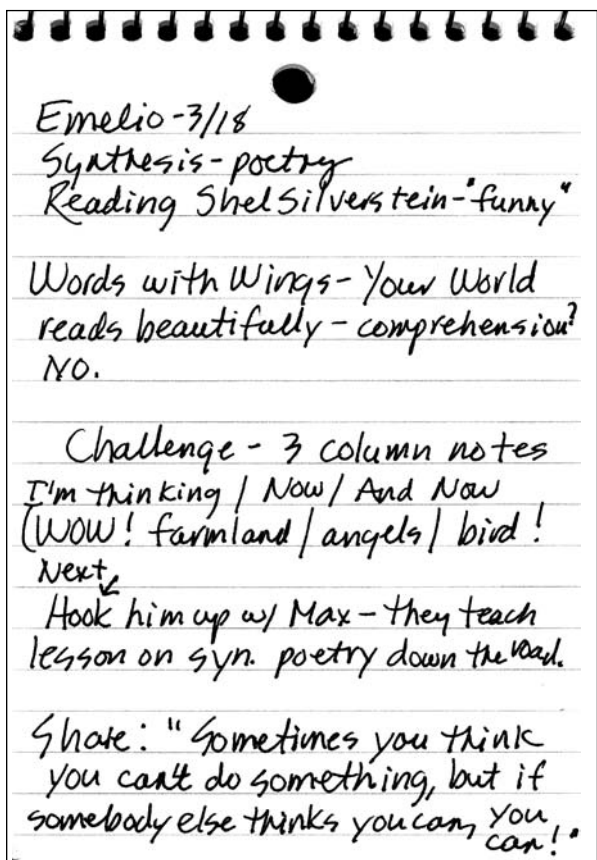 Emelio-3/18
Synthesis-poetry
Reading Shel Silverstein-"funny"
Words with Wings-Your World
reads beautifully-comprehension?
No.
Challenge - 3 column notes
I'm thinking / Now / And Now
(WOW! farmland / angels / bird!
Next
Hook him up w/ Max - they teach
lesson on syn. poetry down the road.
Share: "Sometimes you think
you can't do something, but if
somebody else thinks you can, you
can!"